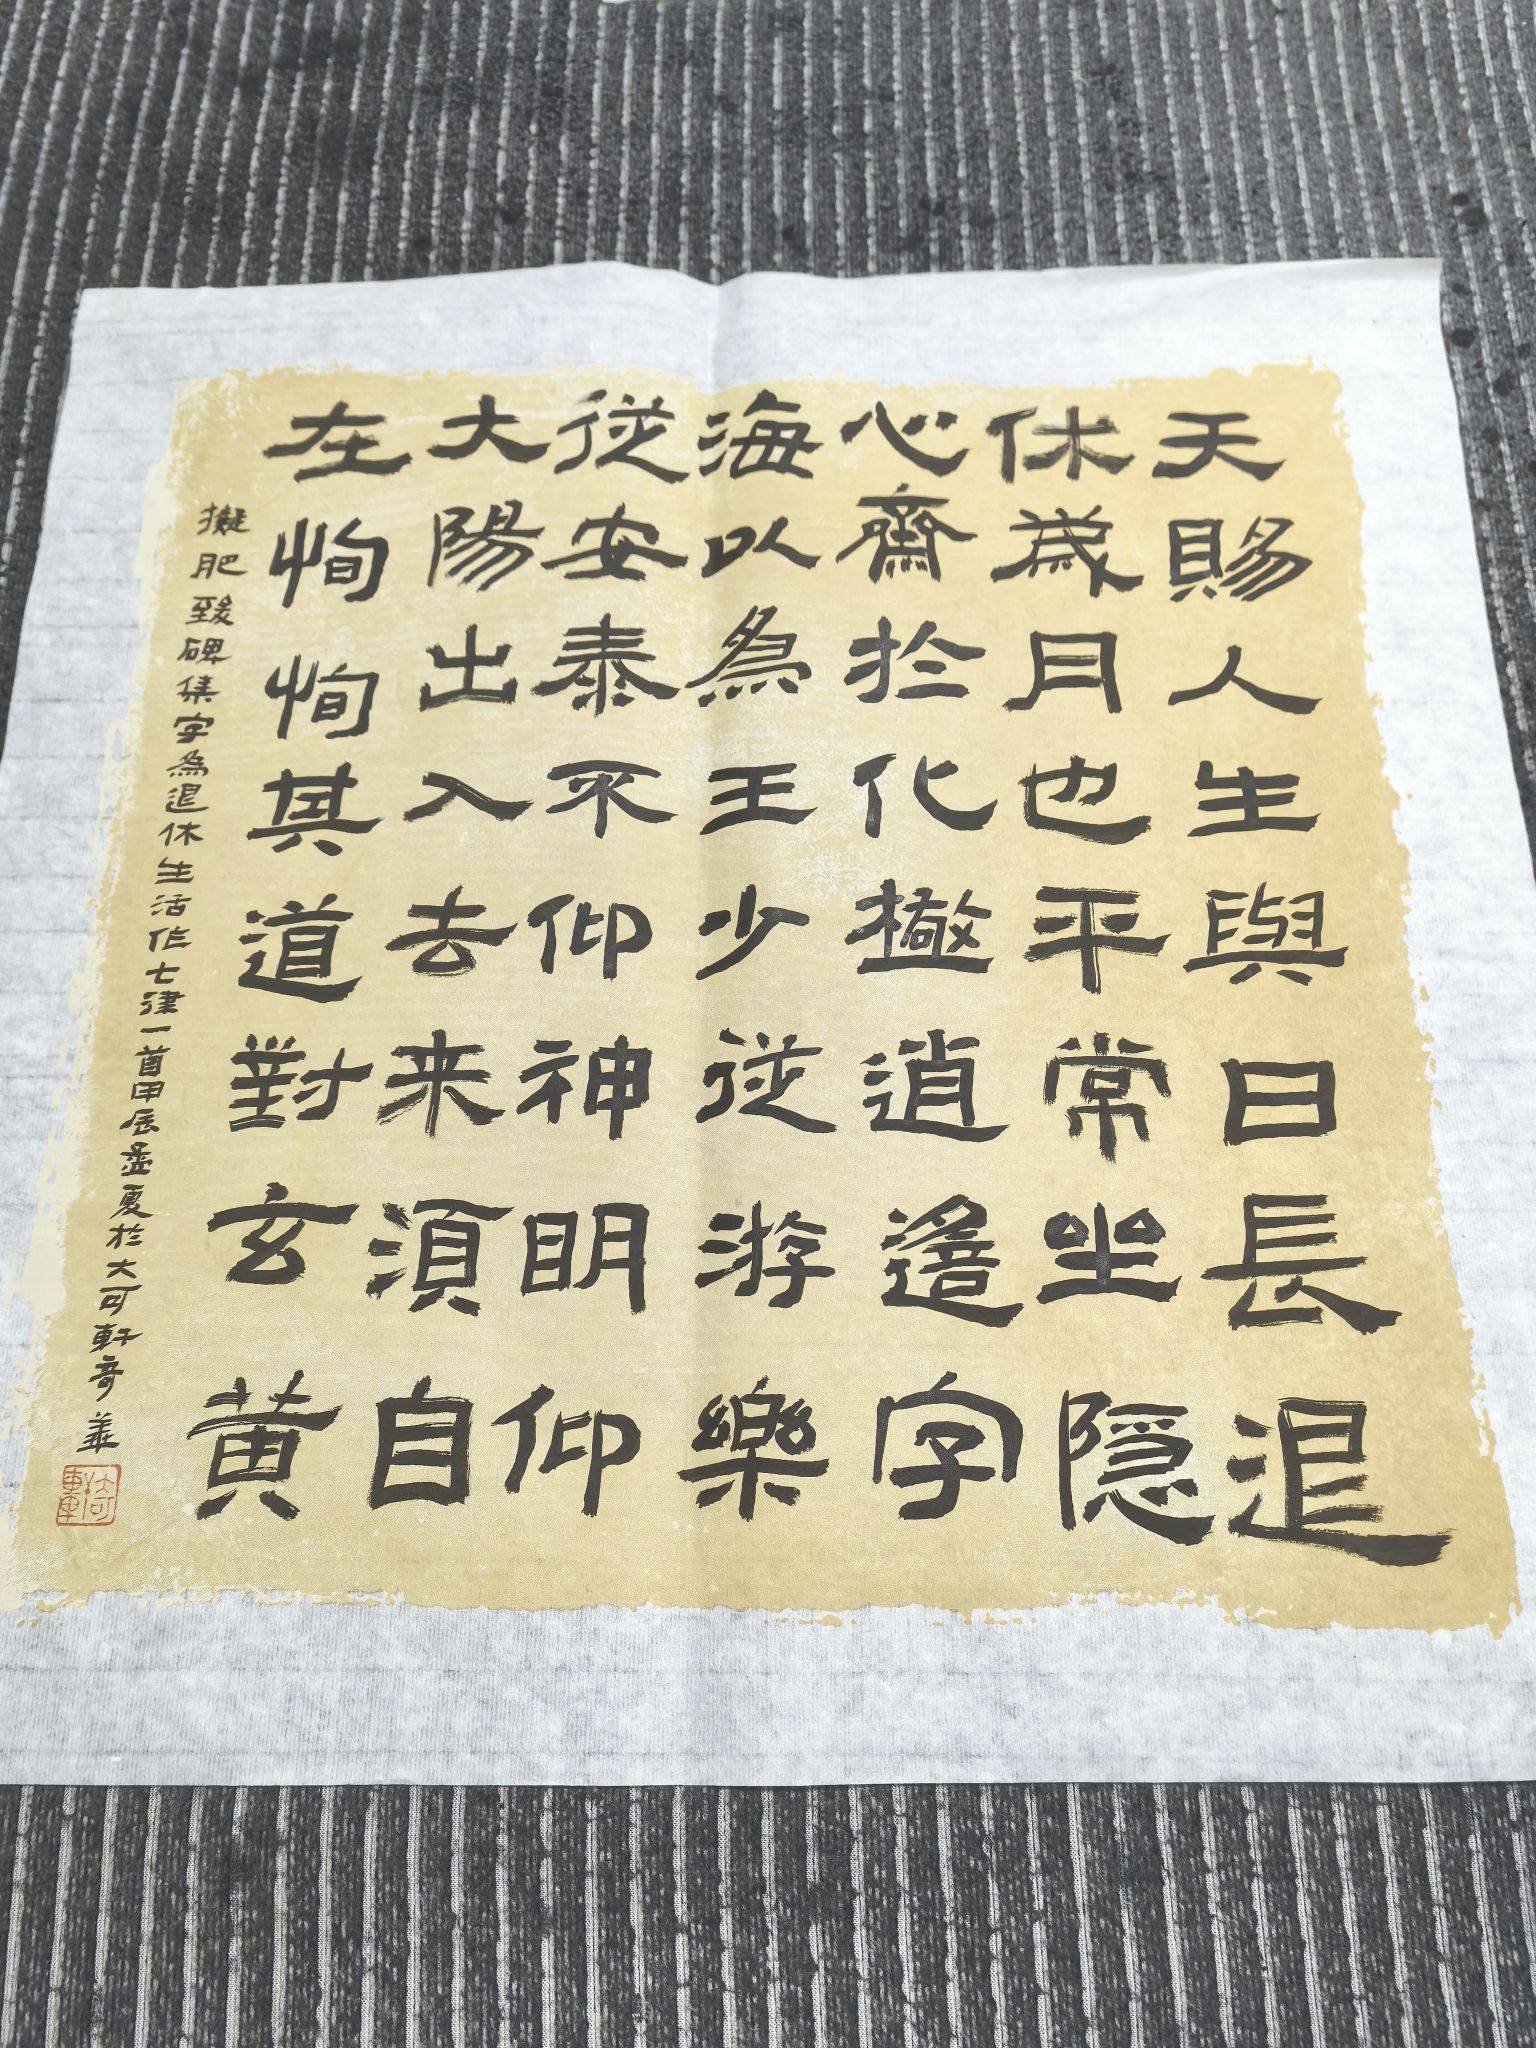 天賜人生與日長退
休歲月也平常坐隱
心齋於化檄逍遙字
海以為王少從游樂
從安泰不仰神明仰
大陽出入去来須自
在恂恂其道對玄黃
擬肥致碑集字為退休生活作七律一首甲辰孟夏於大可軒奇並